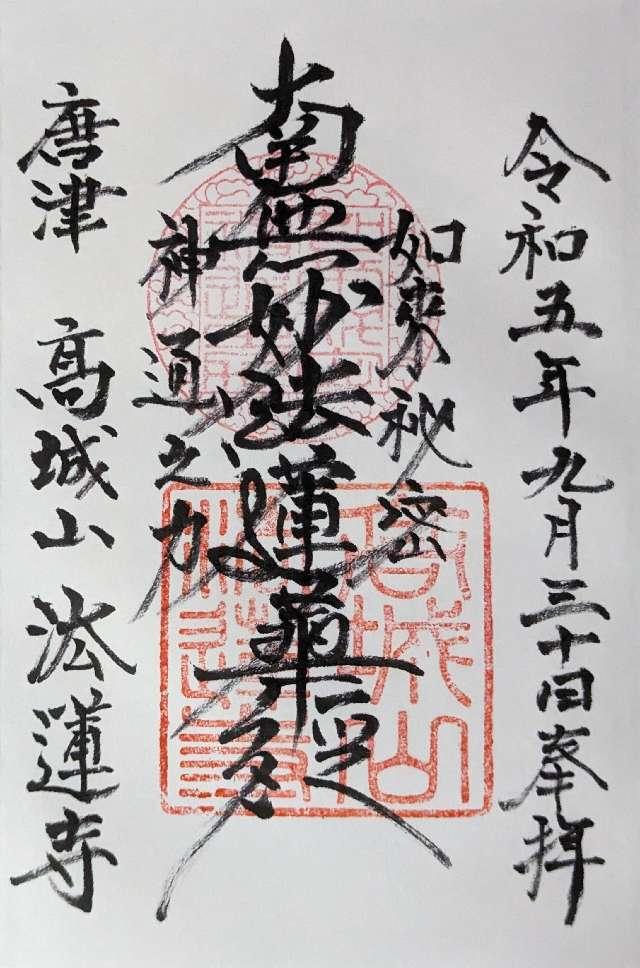 令和五年九月三十日奉拝
如来秘密
南無妙法蓮華経
神通之力
唐津 高城山 法蓮寺
高城山
法蓮寺